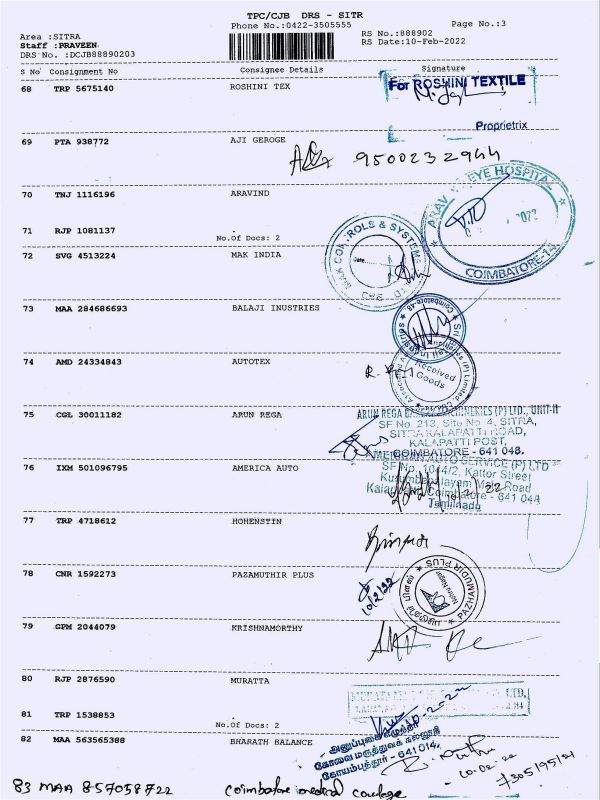 TPC/CJB DRS - SITR
Phone No.:0422-3505555
Page No.:3
Area :SITRA
Staff :PRAVEEN
DRS No. :DCJB88890203
RS No.:888902
RS Date:10-Feb-2022
S No Consignment No Consignee Details Signature
68 TRP 5675140 ROSHINI TEX
For ROSHINI TEXTILE
Proprietrix
69 PTA 938772 AJI GEROGE
9500232944
70 TNJ 1116196 ARAVIND
EYE HOSPITAL
2022
COIMBATORE-14
71 RJP 1081137
No.Of Docs: 2
72 SVG 4513224 MAK INDIA
MAK CONTROLS & SYSTEMS
73 MAA 284686693 BALAJI INUSTRIES
Sri Balaji Industries
74 AMD 24334843 AUTOTEX
Received
Goods
75 CGL 30011182 ARUN REGA
ARUN REGA (P) LTD., UNIT-II
SF No. 213, Site No 4, SITRA,
SITRA KALAPATTI ROAD,
KALAPATTI POST,
COIMBATORE - 641 048.
76 IXM 501096795 AMERICA AUTO
AUTO SERVICE (P) LTD
SF No. 104/2, Kattor Street
Main Road
Coimbatore - 641 048
Tamilnadu
77 TRP 4718612 HOHENSTIN
78 CNR 1592273 PAZAMUTHIR PLUS
10/2/22
PAZHAMUDIR PLUS
Nehru Nagar
79 GPM 2044079 KRISHNAMORTHY
80 RJP 2876590 MURATTA
81 TRP 1538853
No.Of Docs: 2
82 MAA 563565388 BHARATH BALANCE
கோவை மருத்துவக் கல்லூரி
கோயம்புத்தூர் - 641 014.
10.02.22
83 MAA 857058722 Coimbatore medical